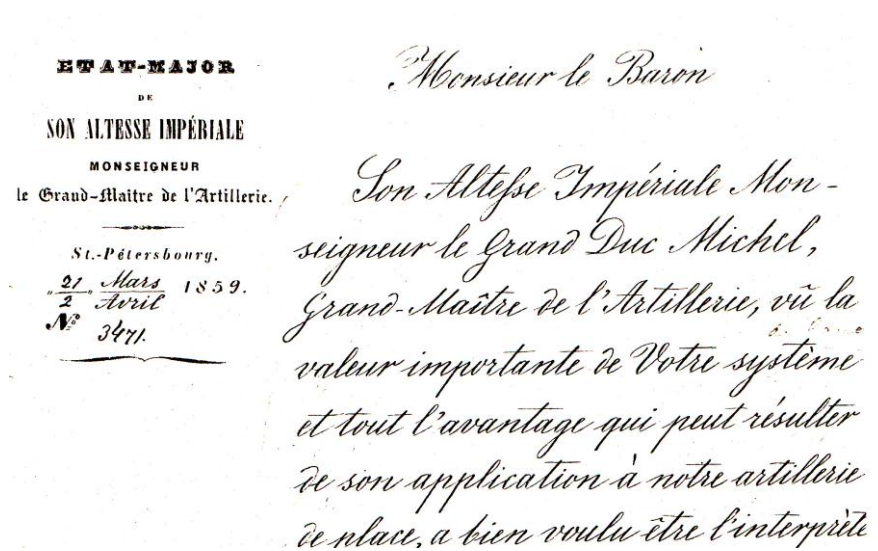 ETAT-MAJOR
DE
SON ALTESSE IMPÉRIALE
MONSEIGNEUR
le Grand-Maitre de l'Artillerie.
St.-Pétersbourg.
„ 21 „ Mars 1859.
2 Avril
№ 3471.
Monsieur le Baron
Son Altesse Impériale Mon-
seigneur le Grand Duc Michel,
Grand-Maître de l'Artillerie, vû la
valeur importante de Votre système
et tout l'avantage qui peut résulter
de son application à notre artillerie
de place, a bien voulu être l'interprète